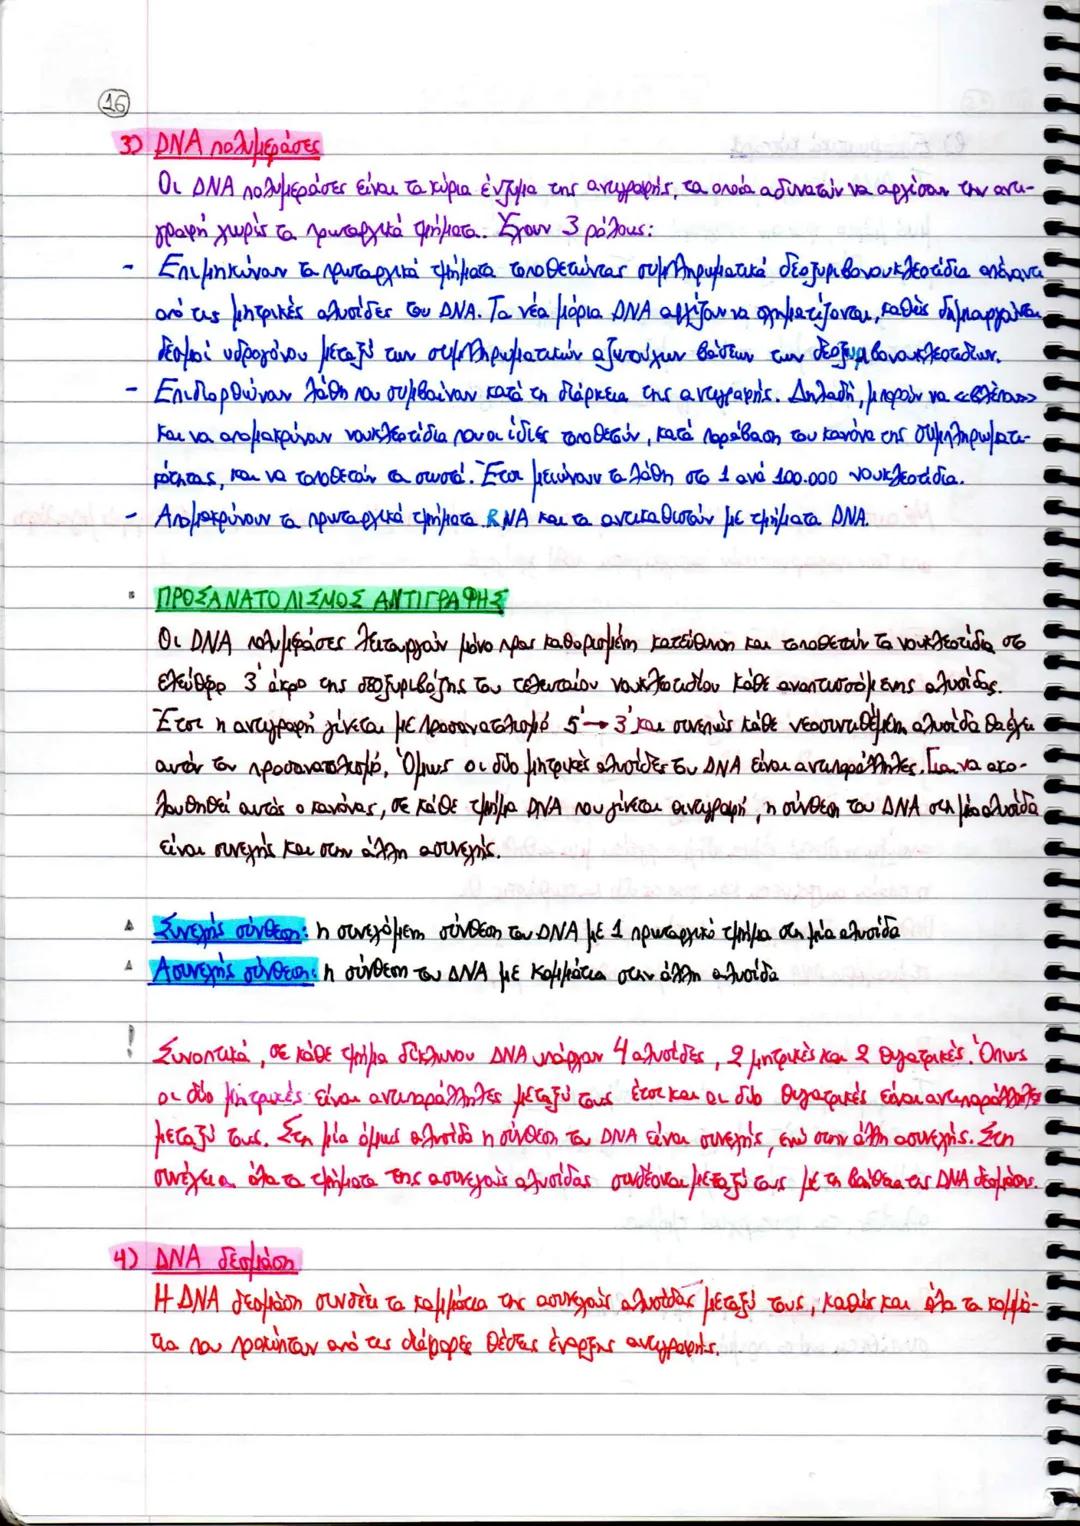 16
3) DNA πολυμεράσες
Οι DNA πολυμεράσες είναι τα κύρια ένζυμα της αντιγραφής, τα οποία αδυνατούν να αρχίσουν την αντι-
γραφή χωρίς τα πρωταρχικά τμήματα. Έχουν 3 ρόλους:
- Επιμηκύνουν τα πρωταρχικά τμήματα τοποθετώντας συμπληρωματικά δεοξυριβονουκλεοτίδια απέναντι
από τις μητρικές αλυσίδες του DNA. Τα νέα μόρια DNA αρχίζουν να σχηματίζονται, καθώς δημιουργούνται
δεσμοί υδρογόνου μεταξύ των συμπληρωματικών αζωτούχων βάσεων των δεοξυριβονουκλεοτιδίων.
- Επιδιορθώνουν λάθη που συμβαίνουν κατά τη διάρκεια της αντιγραφής. Δηλαδή, μπορούν να «βλέπουν»
και να απομακρύνουν νουκλεοτίδια που οι ίδιες τοποθετούν, κατά παράβαση του κανόνα της συμπληρωματι-
κότητας, και να τοποθετούν τα σωστά. Έτσι μειώνουν τα λάθη στο 1 ανά 100.000 νουκλεοτίδια.
- Απομακρύνουν τα πρωταρχικά τμήματα RNA και τα αντικαθιστούν με τμήματα DNA.
ΠΡΟΣΑΝΑΤΟΛΙΣΜΟΣ ΑΝΤΙΓΡΑΦΗΣ
Οι DNA πολυμεράσες λειτουργούν μόνο προς καθορισμένη κατεύθυνση και τοποθετούν τα νουκλεοτίδια στο
ελεύθερο 3' άκρο της δεοξυριβόζης του τελευταίου νουκλεοτιδίου κάθε αναπτυσσόμενης αλυσίδας.
Έτσι η αντιγραφή γίνεται με προσανατολισμό 5'→3' και συνεπώς κάθε νεοσυντιθέμενη αλυσίδα θα έχει
αυτόν τον προσανατολισμό. Όμως οι δύο μητρικές αλυσίδες του DNA είναι αντιπαράλληλες. Για να ακο-
λουθηθεί αυτός ο κανόνας, σε κάθε τμήμα DNA που γίνεται αντιγραφή, η σύνθεση του DNA στη μία αλυσίδα
είναι συνεχής και στην άλλη ασυνεχής.
Συνεχής σύνθεση: η συνεχόμενη σύνθεση του DNA με 1 πρωταρχικό τμήμα στη μία αλυσίδα
Ασυνεχής σύνθεση: η σύνθεση του DNA με κομμάτια στην άλλη αλυσίδα
! Συνοπτικά, σε κάθε τμήμα δίκλωνου DNA υπάρχουν 4 αλυσίδες, 2 μητρικές και 2 θυγατρικές. Όπως
οι δύο μητρικές είναι αντιπαράλληλες μεταξύ τους έτσι και οι δύο θυγατρικές είναι αντιπαράλληλες
μεταξύ τους. Στη μία όμως αλυσίδα η σύνθεση του DNA είναι συνεχής, ενώ στην άλλη ασυνεχής. Στη
συνέχεια όλα τα τμήματα της ασυνεχούς αλυσίδας συνδέονται μεταξύ τους με τη βοήθεια της DNA δεσμάσης.
4) DNA δεσμάση
Η DNA δεσμάση συνδέει τα κομμάτια της ασυνεχούς αλυσίδας μεταξύ τους, καθώς και όλα τα κομμά-
τια που προκύπτουν από τις διάφορες θέσεις έναρξης αντιγραφής.